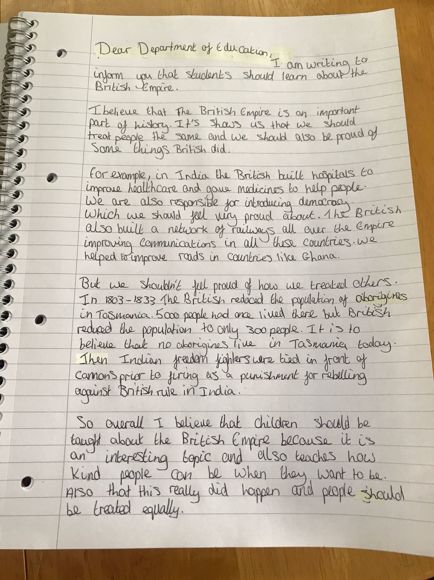 Dear Department of Education,
I am writing to
inform you that students should learn about the
British Empire.
I believe that The British Empire is an important
part of history. It's shows us that we should
treat people the same and we should also be proud of
some things British did.
for example, in India the British built hospitals to
improve healthcare and gave medicines to help people.
We are also responsible for introducing democracy
which we should feel very proud about. The British
also built a network of railways all over the Empire
improving communications in all these countries. We
helped to improve roads in countries like Ghana.
But we shouldn't feel proud of how we treated others.
In 1803-1833 The British reduced the population of aborigines
in Tasmania. 5000 people had once lived there but British
reduced the population to only 300 people. It is to
believe that no aborigines live in Tasmania today.
Then Indian freedom fighters were tied in front of
cannons prior to firing as a punishment for rebelling
against British rule in India.
So overall I believe that children should be
taught about the British Empire because it is
an interesting topic and also teaches how
kind people can be when they want to be.
Also that this really did happen and people should
be treated equally.